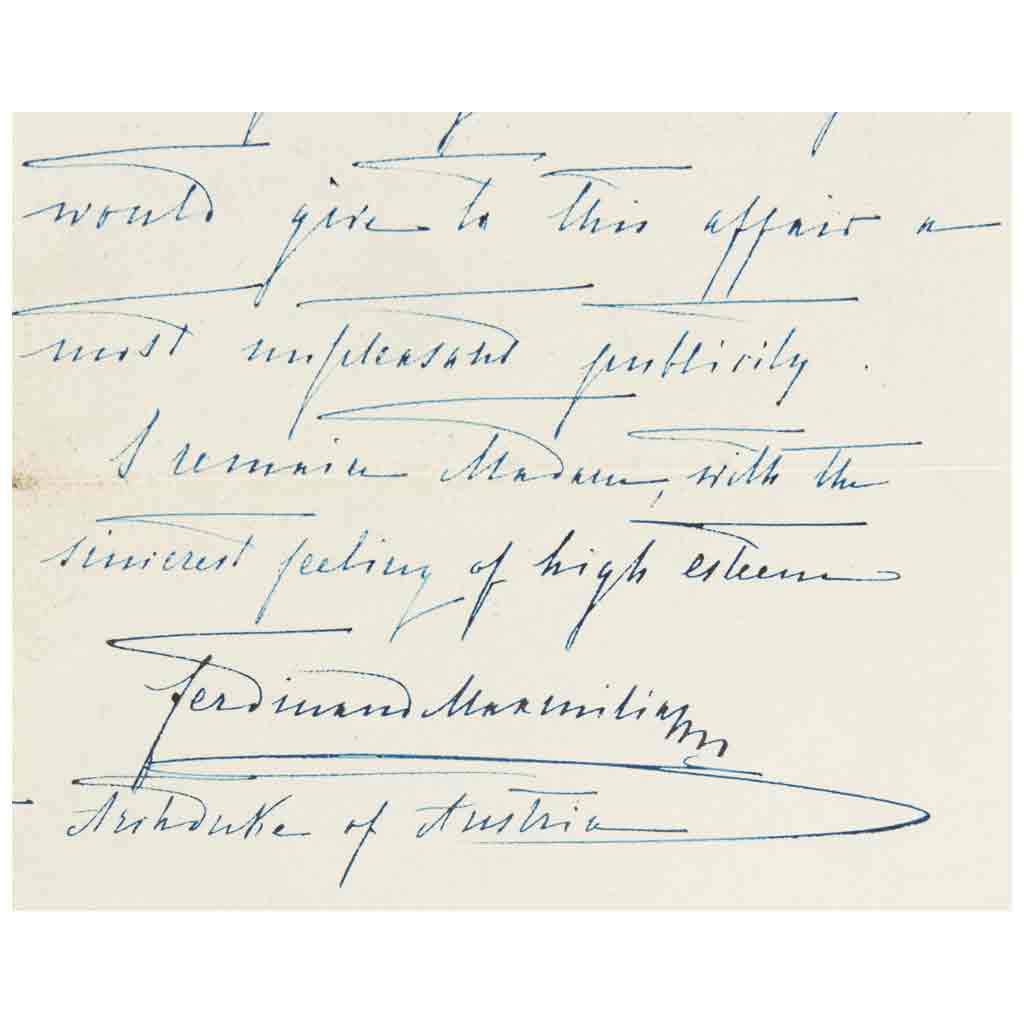 would give to this affair a
most unpleasant publicity.
I remain Madame, with the
sincerest feeling of high esteem
Ferdinand Maximilian
Archduke of Austria